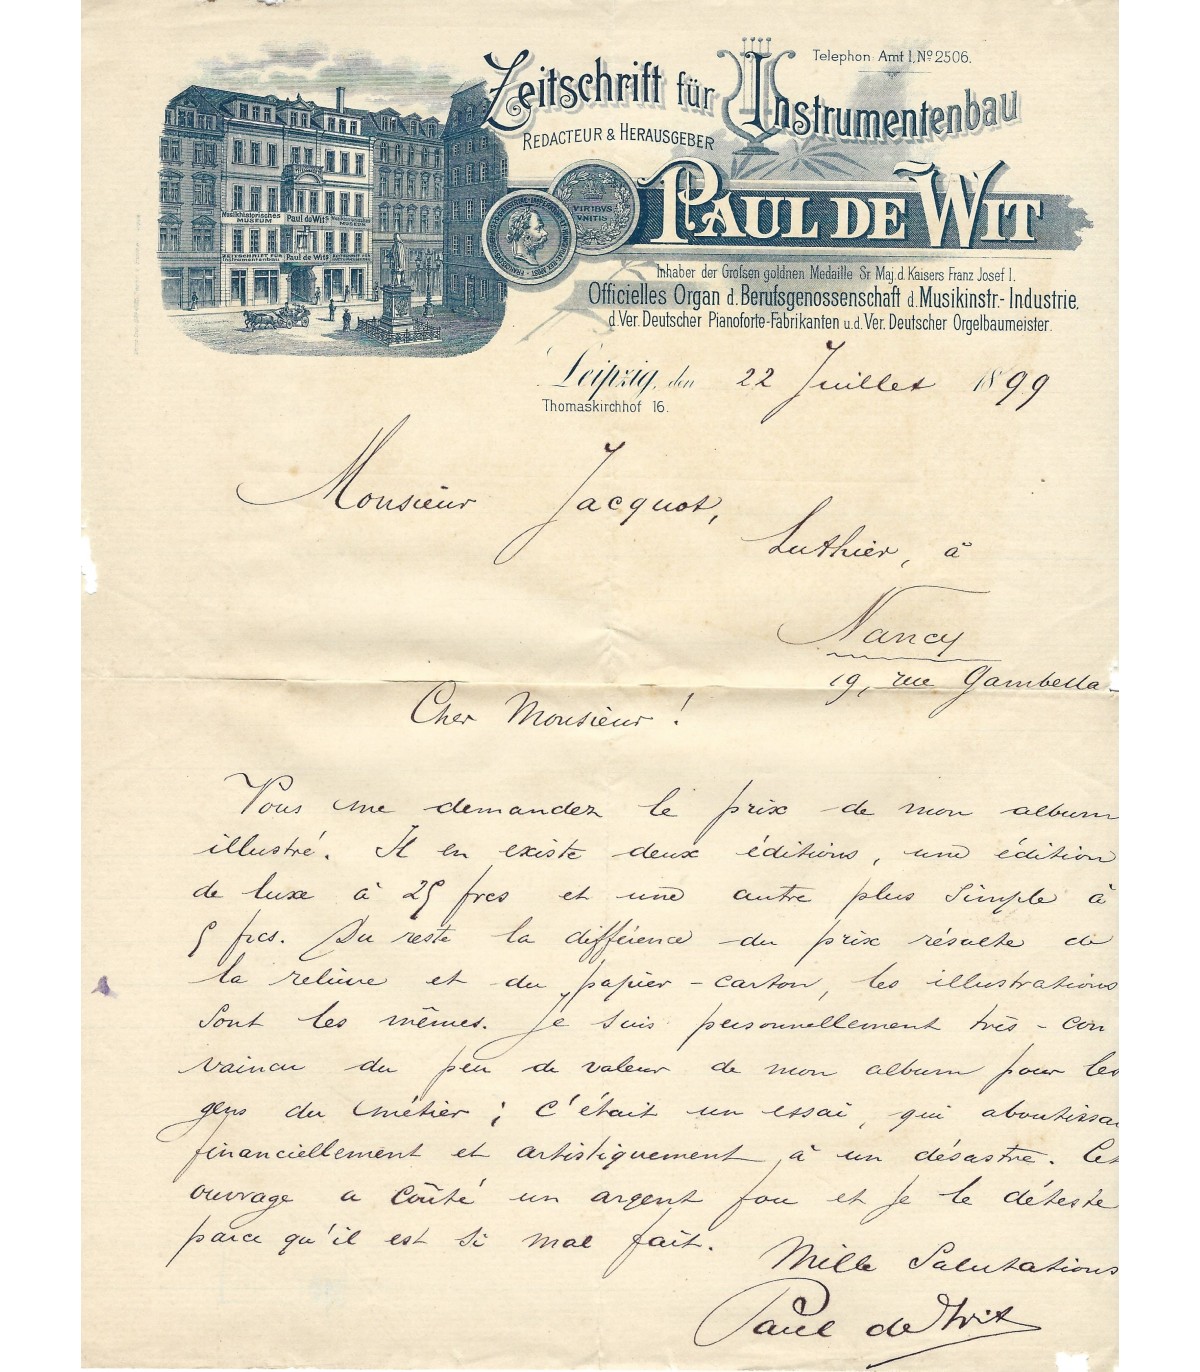 Telephon Amt I, No 2506.
Zeitschrift für Instrumentenbau
REDACTEUR & HERAUSGEBER
PAUL DE WIT
VIRIBVS
VNITIS
Musikhistorisches
MUSEUM
Paul de Wit's
MUSEUM
ZEITSCHRIFT FÜR
Instrumentenbau
Paul de Wit's
Inhaber der Großen goldnen Medaille Sr Maj. d. Kaisers Franz Josef I.
Officielles Organ d. Berufsgenossenschaft d. Musikinstr.- Industrie,
d. Ver. Deutscher Pianoforte-Fabrikanten u. d. Ver. Deutscher Orgelbaumeister.
Leipzig, den 22 Juillet 1899
Thomaskirchhof 16.
Monsieur Jacquot,
Luthier, à
Nancy
19, rue Gambetta.
Cher Monsieur!
Vous me demandez le prix de mon album
illustré. Il en existe deux éditions, une édition
de luxe à 25 frcs et une autre plus simple à
5 frcs. Du reste la différence du prix résulte de
la reliure et du papier-carton, les illustrations
sont les mêmes. Je suis personnellement très-con
vaincu du peu de valeur de mon album pour les
gens du métier; c'était un essai, qui aboutissai
financiellement et artistiquement à un désastre. Cet
ouvrage a coûté un argent fou et je le déteste
parce qu'il est si mal fait.
Mille Salutations
Paul de Wit